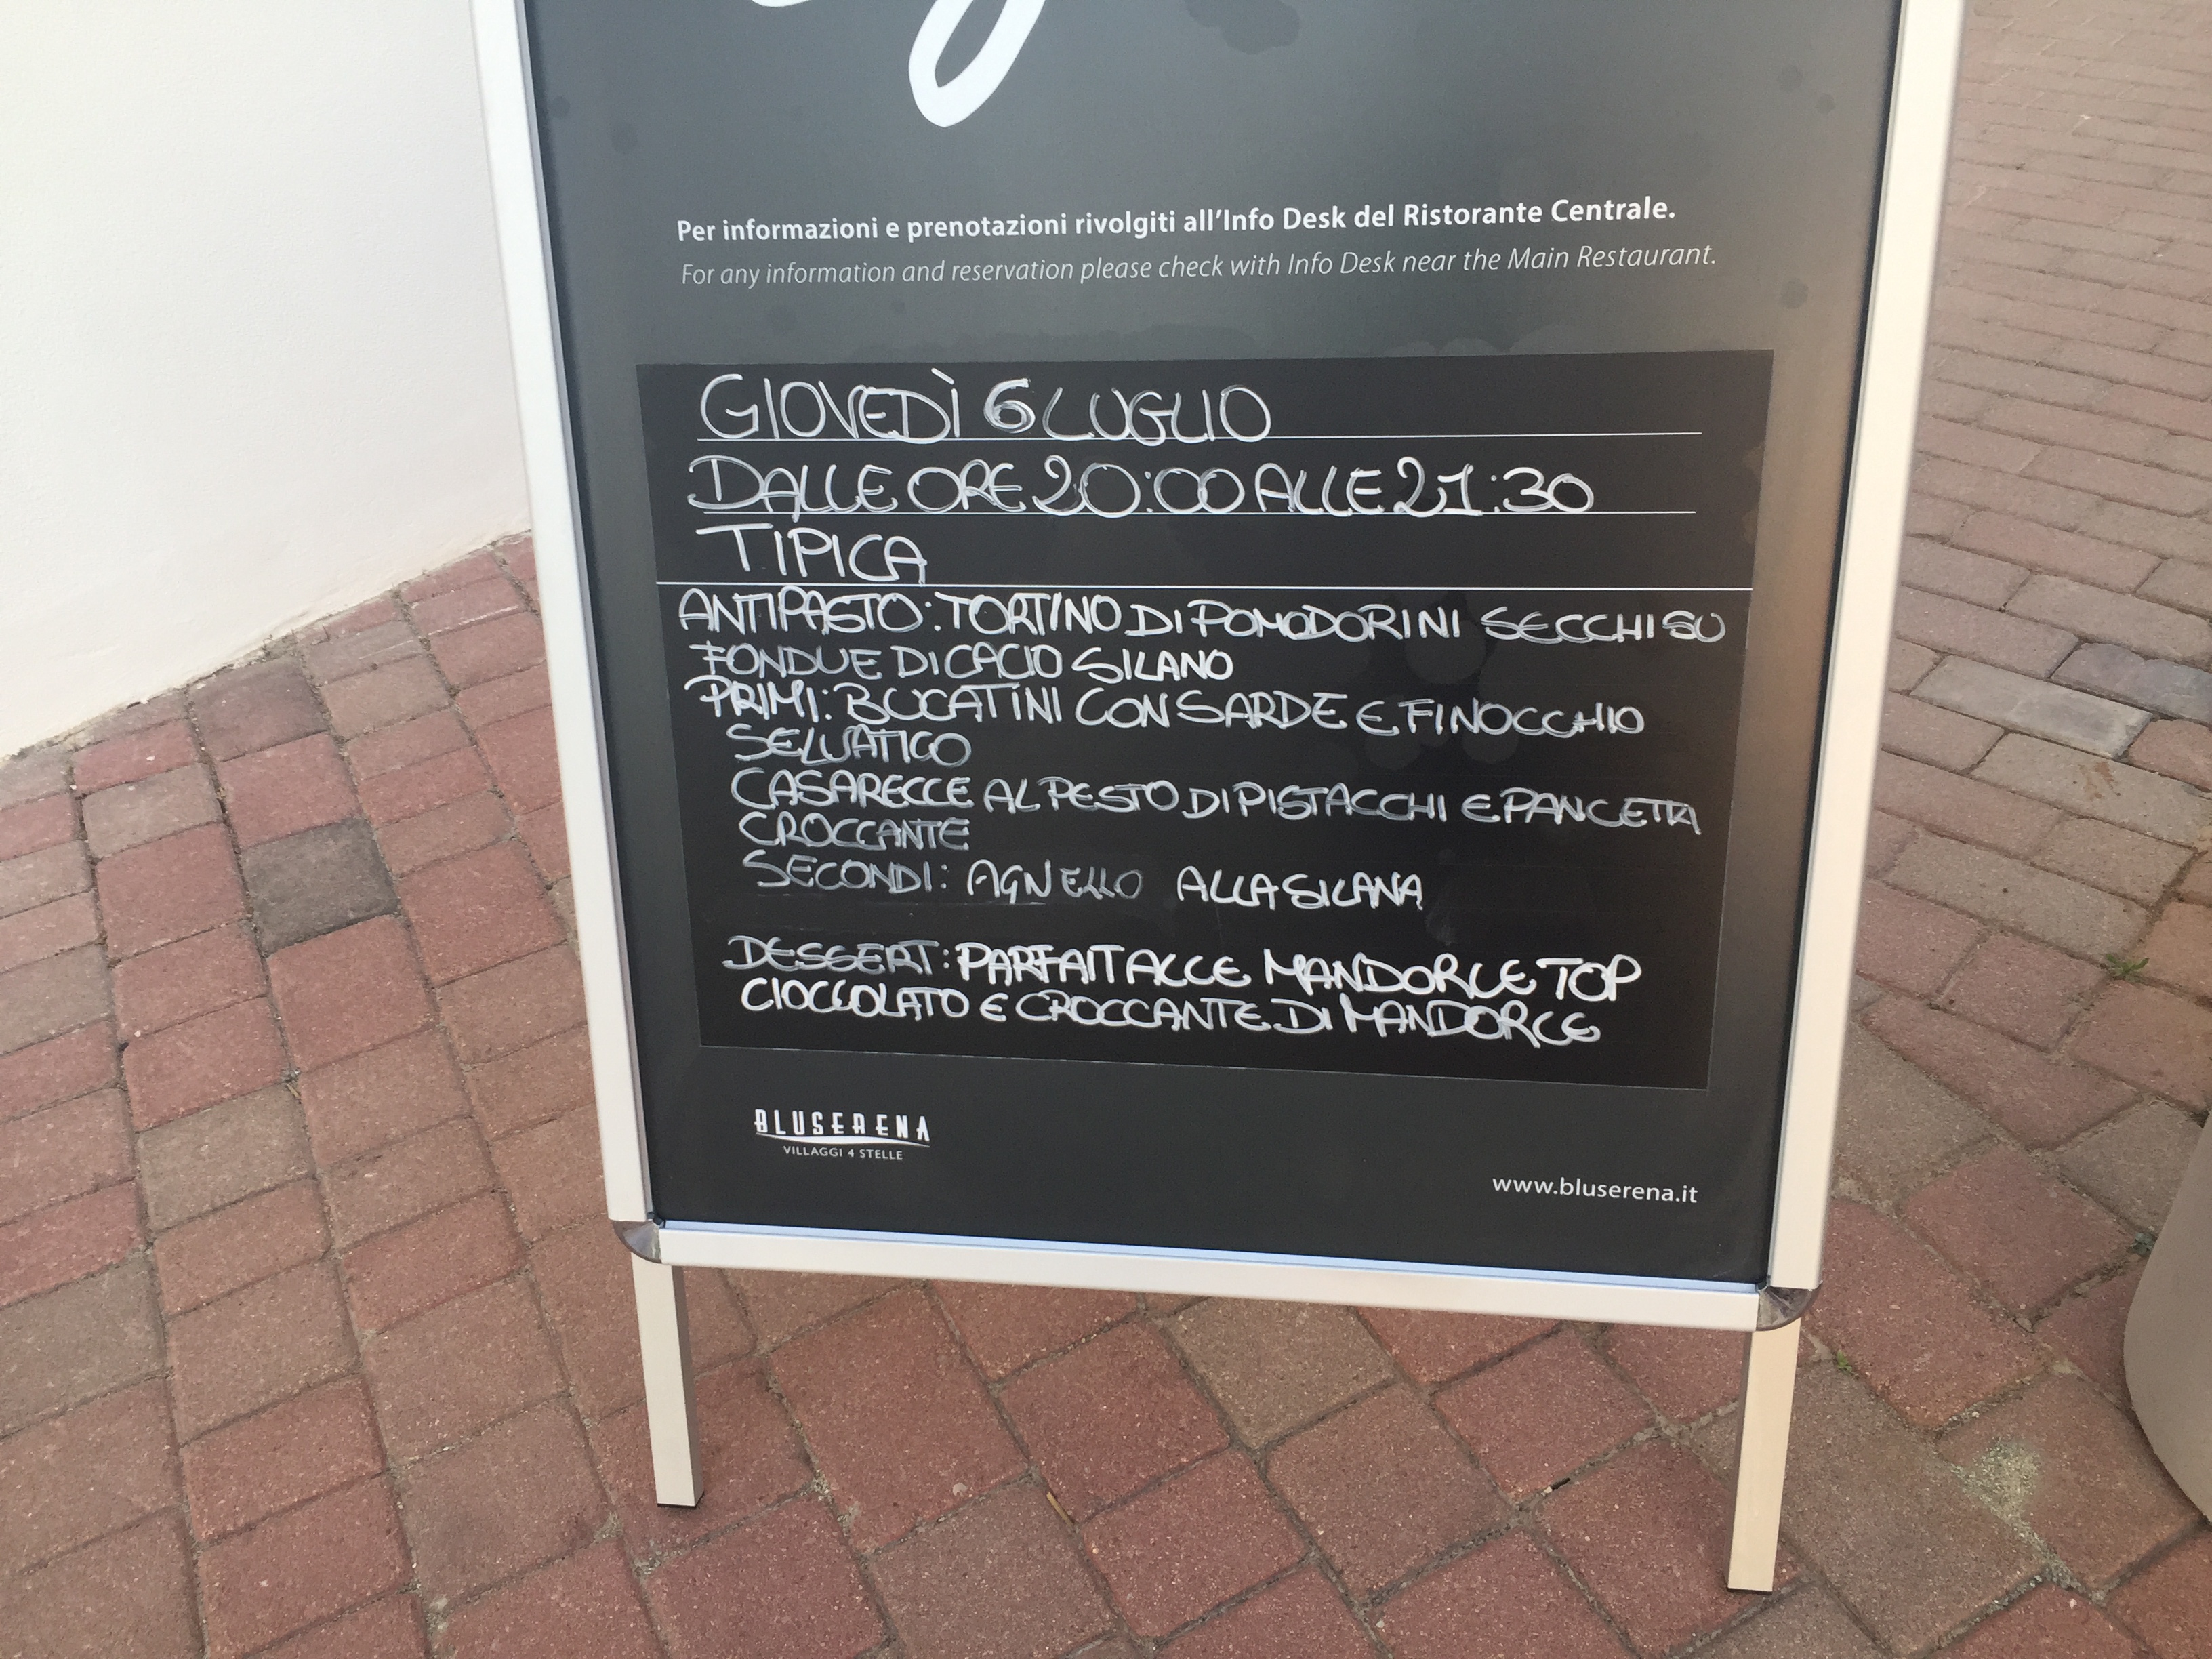 Per informazioni e prenotazioni rivolgiti all'Info Desk del Ristorante Centrale.
For any information and reservation please check with Info Desk near the Main Restaurant.
GIOVEDÌ 6 LUGLIO
DALLE ORE 20:00 ALLE 21:30
TIPICA
ANTIPASTO: TORTINO DI POMODORINI SECCHI SU
FONDUE DI CACIO SILANO
PRIMI: BUCATINI CON SARDE E FINOCCHIO
SELVATICO
CASARECCE AL PESTO DI PISTACCHI E PANCETTA
CROCCANTE
SECONDI: AGNELLO ALLA SILANA
DESSERT: PARFAIT ALLE MANDORLE TOP
CIOCCOLATO E CROCCANTE DI MANDORLE
BLUSERENA
VILLAGGI 4 STELLE
www.bluserena.it